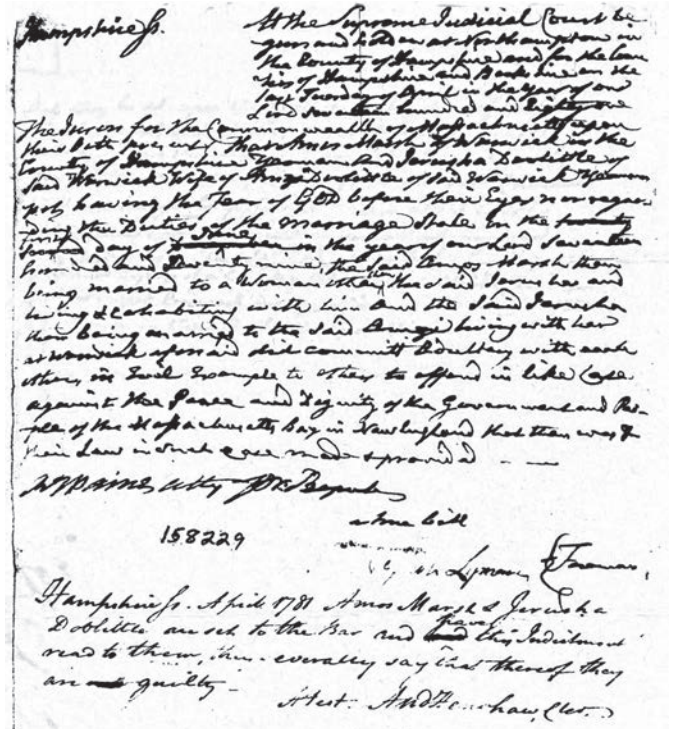 Hampshire ss.
At the Supreme Judicial Court be
gun and holden at Northampton in
the County of Hampshire and for the Coun
ties of Hampshire and Berkshire on the
last Tuesday of April in the Year of our
Lord Seventeen hundred and Eighty one
The Jurors for the Commonwealth of Massachusetts upon
their Oath present, That Amos Marsh of Warwick in the
County of Hampshire Yeoman And Jerusha Doolittle of
said Warwick Wife of Amzi Doolittle of said Warwick Yeoman
not having the Fear of GOD before their Eyes nor regar
ding the Duties of the marriage State in the
first day of June in the year of our Lord Seventeen
hundred and Seventy nine, the said Amos Marsh then
being married to a Woman other than said Jerusha and
living & cohabiting with him and the said Jerusha
then being married to the said Amzi living with her
at Warwick aforesaid did committ Adultery with each
other, in Evil Example to others to offend in like Case
against the Peace and Dignity of the Government and Peo-
ple of the Massachusetts Bay in New England that then was &
their Law in such case made & provided
RTPaine Atty pro Populo
a true bill
158229
Lyman Foreman
Hampshire ss. April 1781 Amos Marsh & Jerusha
Dolittle are set to the Bar and have this Indictment
read to them, they severalley say that thereof they
are guilty -
Attest: And Henshaw, Cler.